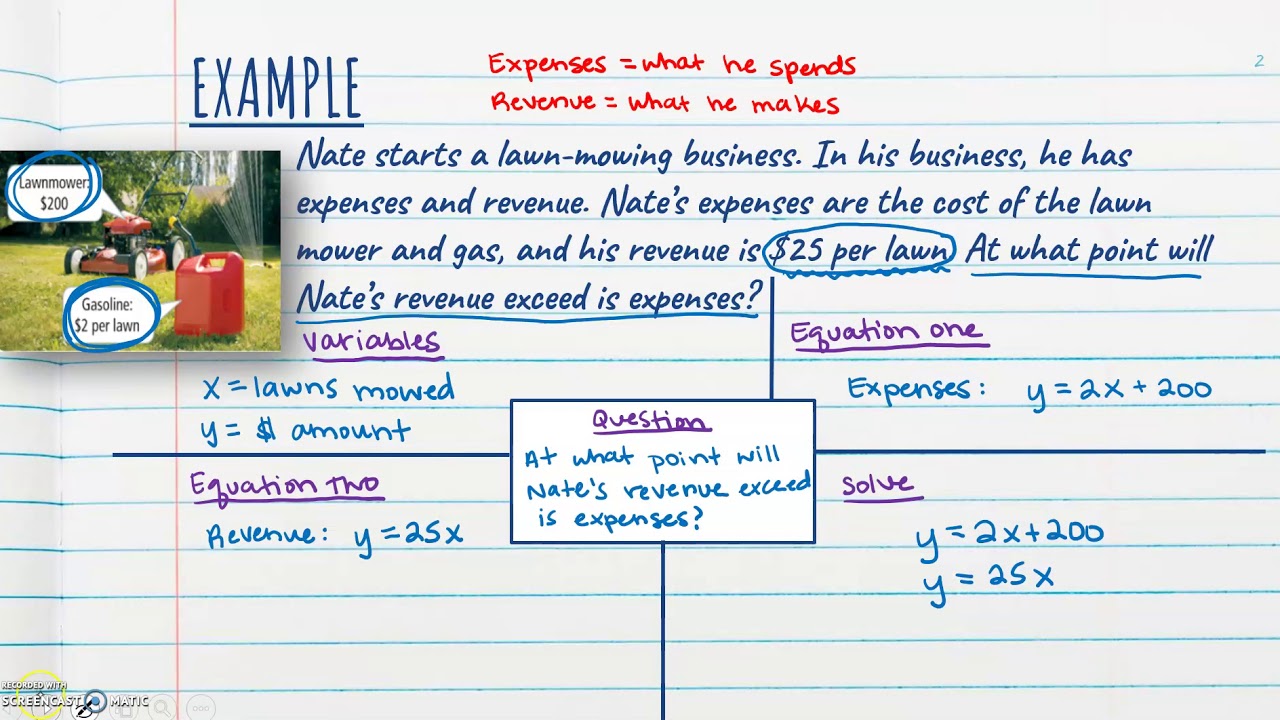 2
EXAMPLE
Expenses = what he spends
Revenue = what he makes
Nate starts a lawn-mowing business. In his business, he has
expenses and revenue. Nate's expenses are the cost of the lawn
mower and gas, and his revenue is $25 per lawn. At what point will
Nate's revenue exceed is expenses?
Lawnmower:
$200
Gasoline:
$2 per lawn
Variables
x = lawns mowed
y = $ amount
Equation one
Expenses: y = 2x + 200
Question
At what point will
Nate's revenue exceed
is expenses?
Equation Two
Revenue: y = 25x
Solve
y = 2x+200
y = 25x
RECORDED WITH
SCREENCAST MATIC